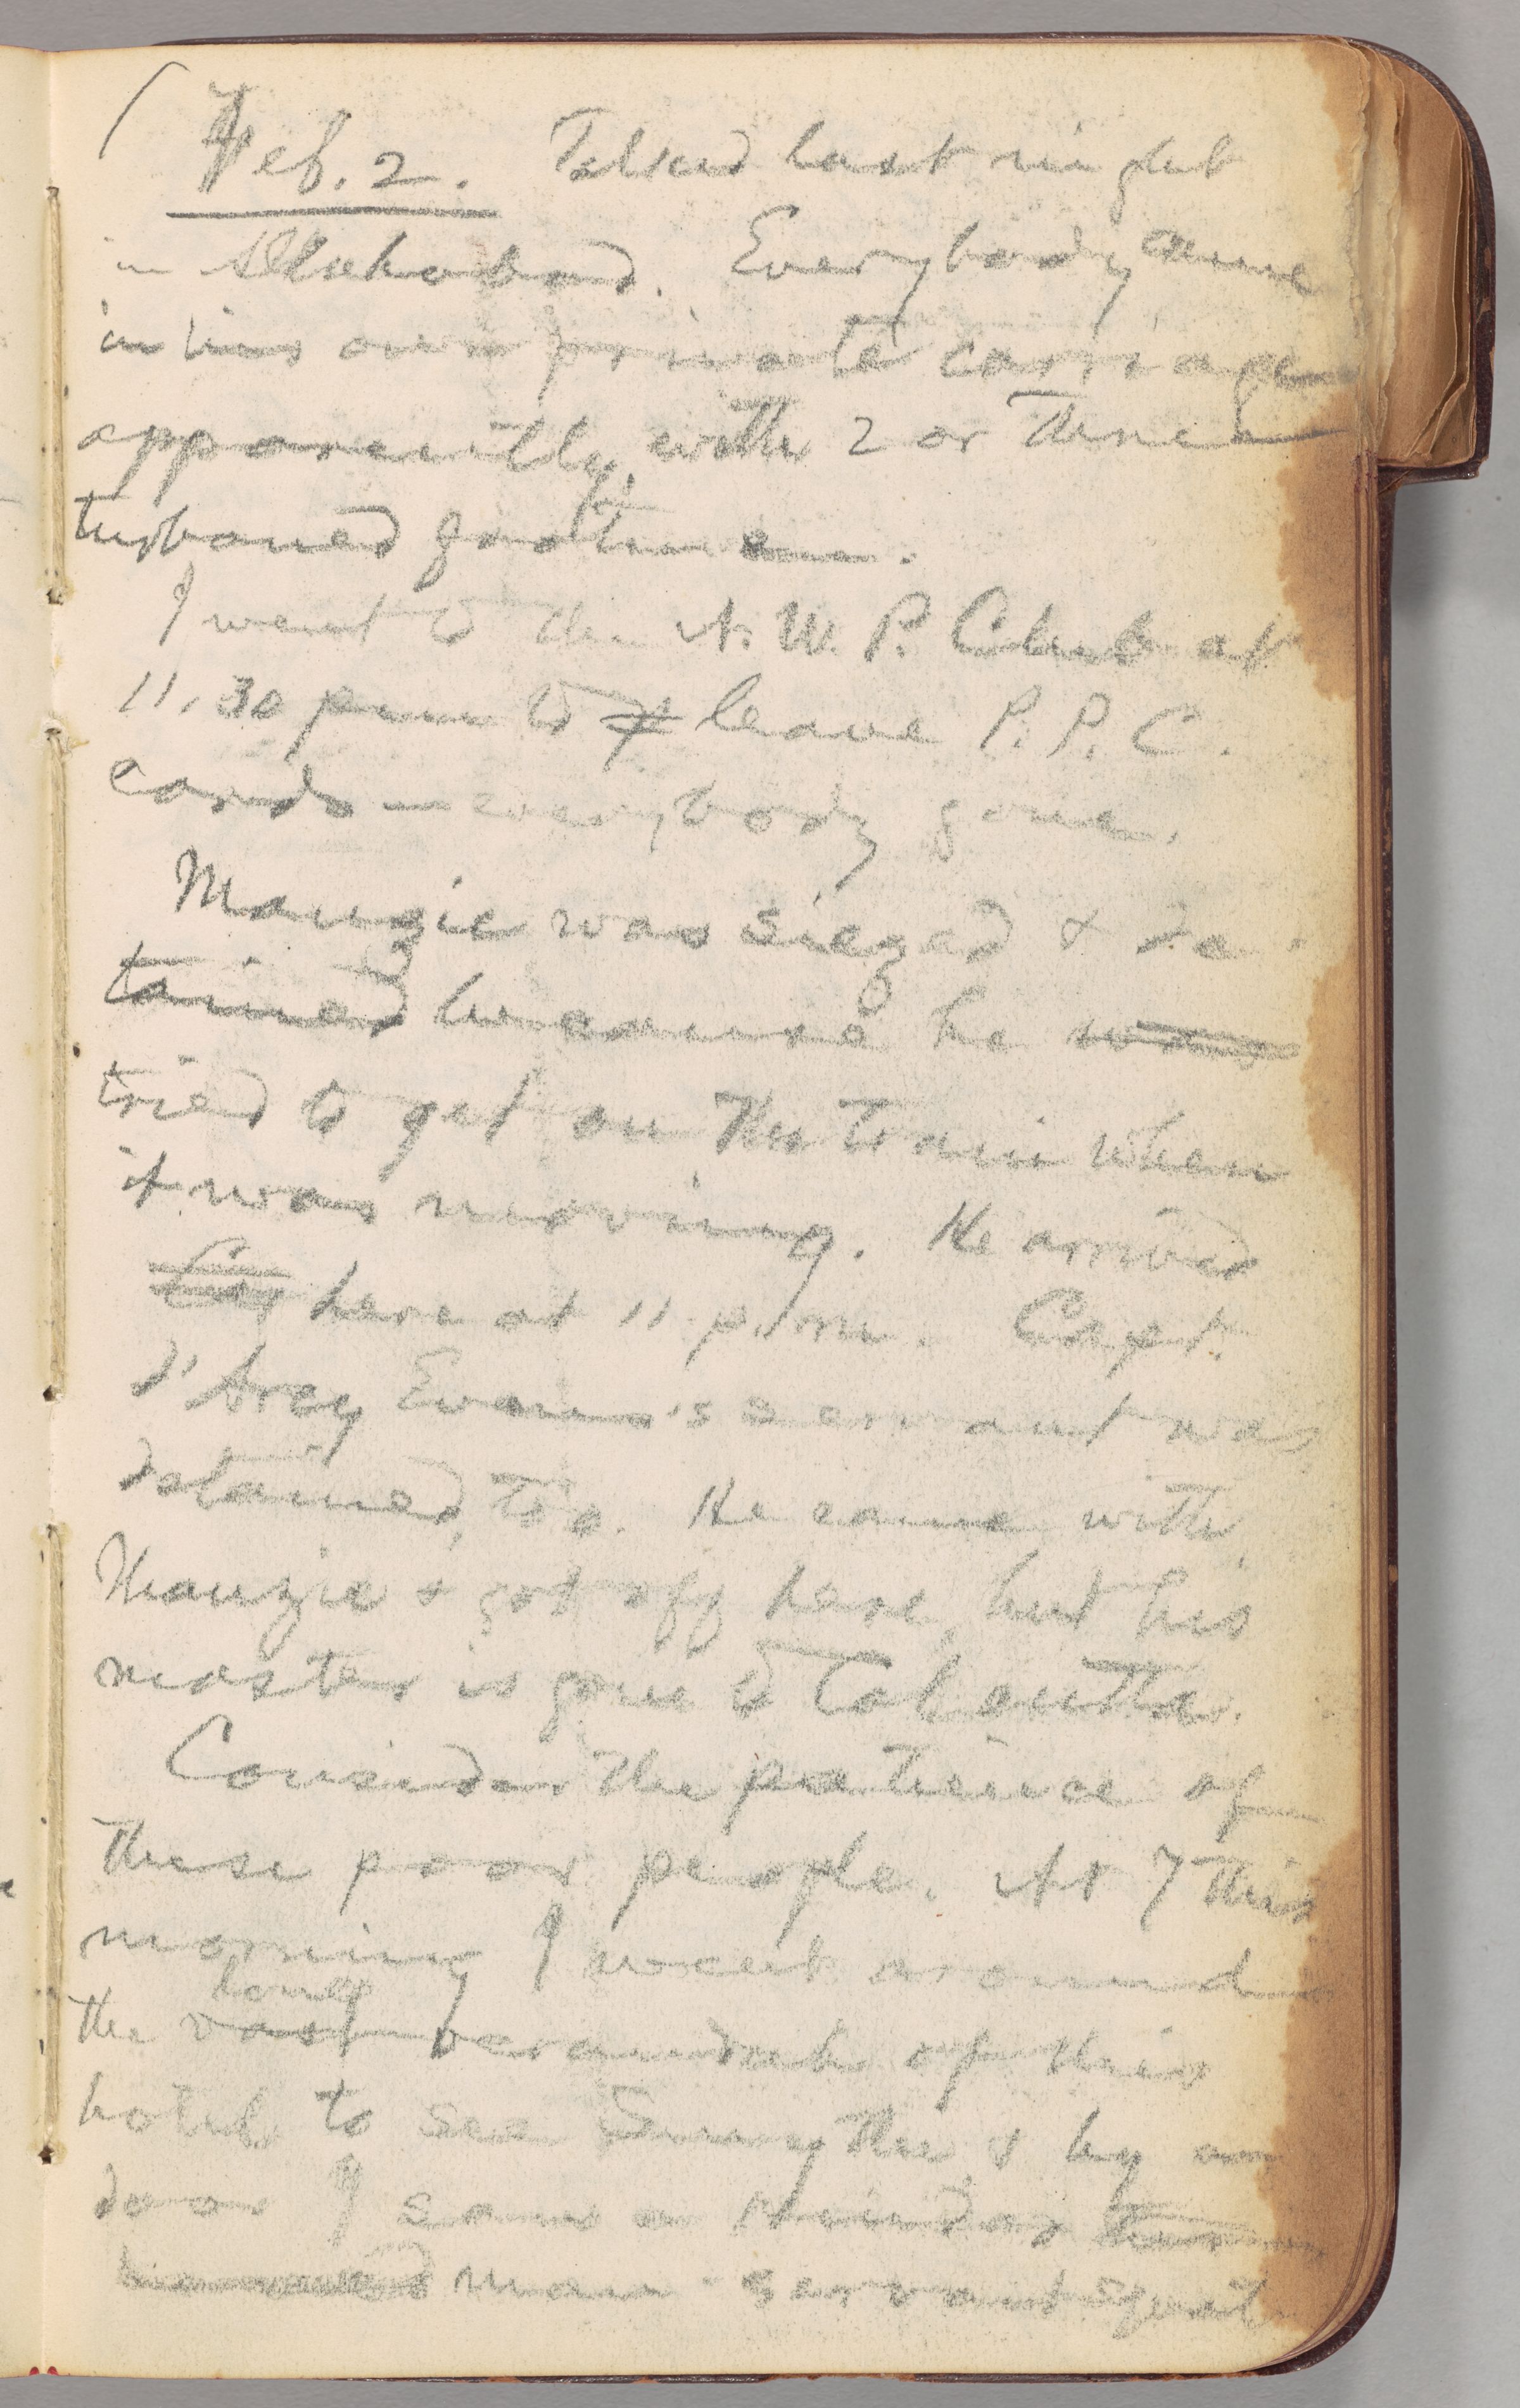 Feb. 2. Talked last night
in Allahabad. Everybody came
in his own private carriage
apparently, with 2 or three
turbaned footmen.
I went to the N. W. P. Club at
11.30 pm to leave P. P. C.
cards — everybody gone.
Mouzie was siezed & de-
tained because he
tried to get on the train when
it was moving. He arrived
here at 11 p.m. Capt.
d'Arcy Evans's servant was
detained, too. He came with
Mouzie & got off here, but his
master is gone to Calcutta.
Consider the patience of
these poor people. At 7 this
morning I went around
long
the vast verandah of this
hotel to see Smythe & by a
door I saw a Hindoo
man-servant squat